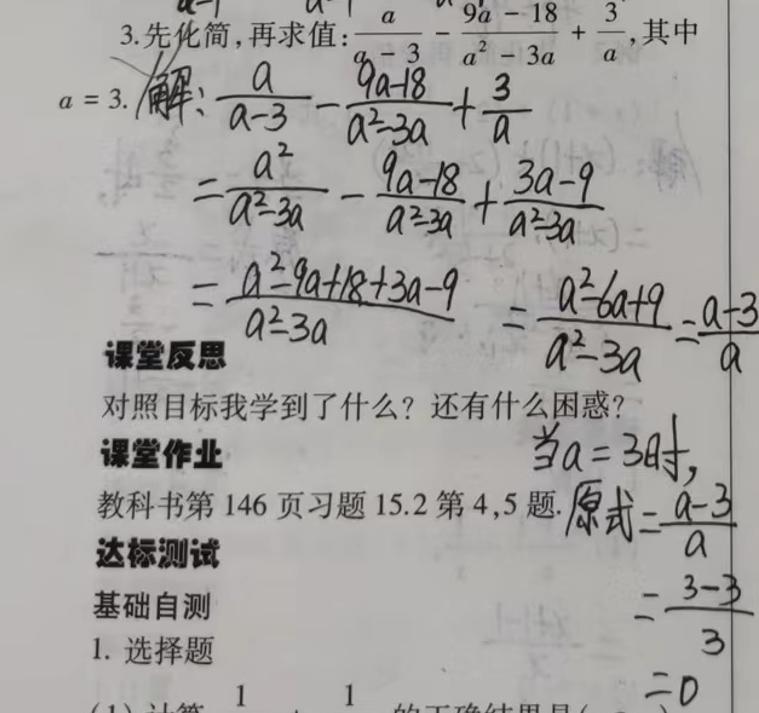 3.先化简,再求值:a/(a-3) - (9a-18)/(a²-3a) + 3/a,其中
a = 3. 解: a/(a-3) - (9a-18)/(a²-3a) + 3/a
= a²/(a²-3a) - (9a-18)/(a²-3a) + (3a-9)/(a²-3a)
= (a²-9a+18+3a-9)/(a²-3a) = (a²-6a+9)/(a²-3a) = (a-3)/a
课堂反思
对照目标我学到了什么? 还有什么困惑?
当a=3时,
课堂作业
教科书第 146 页习题 15.2 第 4,5 题.
原式=(a-3)/a
达标测试
基础自测
=(3-3)/3
1. 选择题
=0